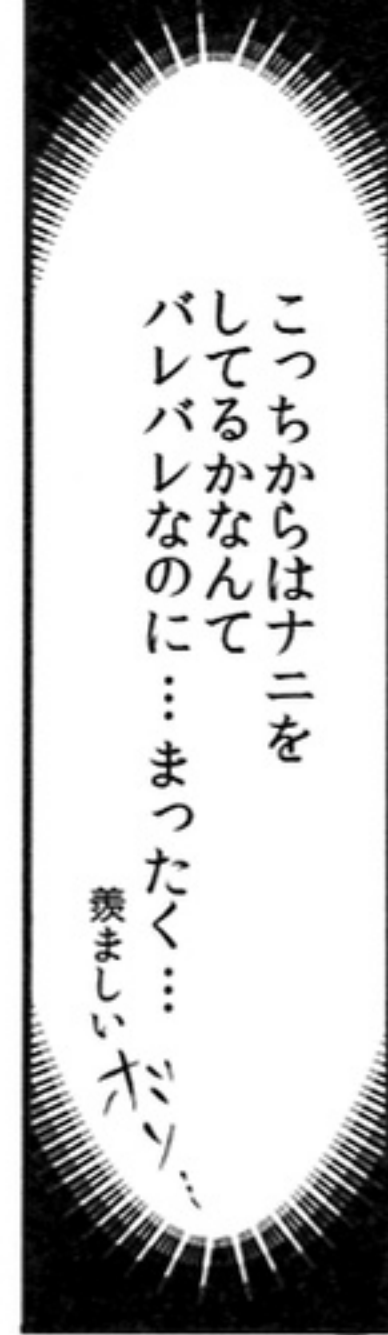 こっちからはナニを
してるかなんて
バレバレなのに…まったく…
羨ましい
ボソ…